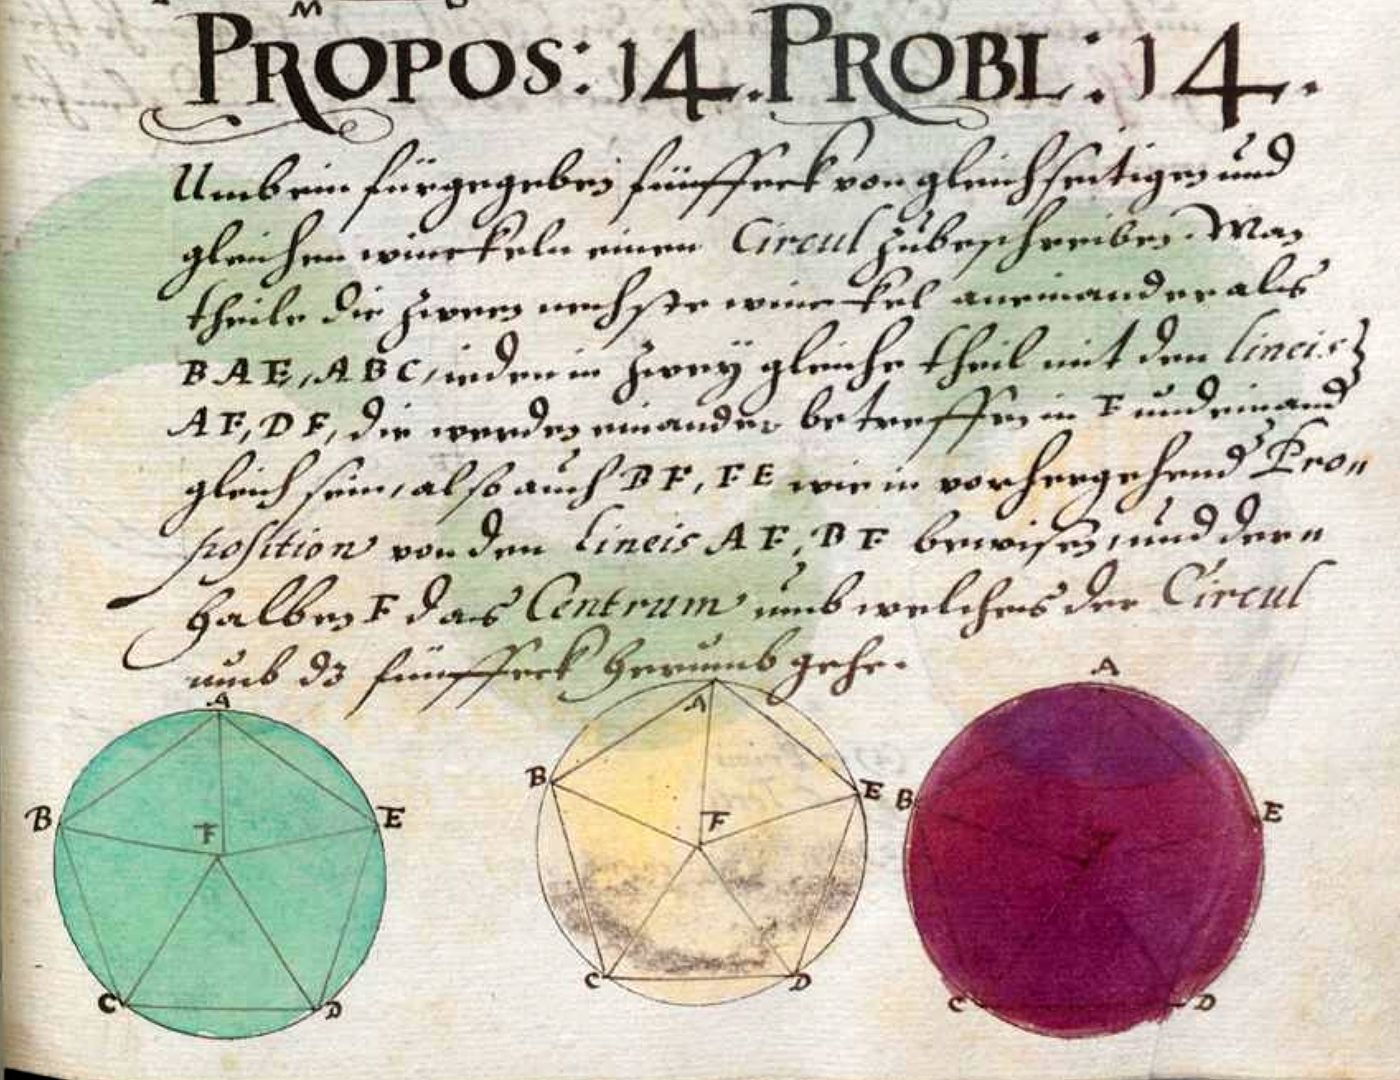 M
PROPOS: 14. PROBL: 14.
Umb ein fürgegeben fünffeck von gleichseitigen und
gleichen winckeln einen Circul zubeschreiben. Man
theile die zween nechste winckel aneinander als
BAE, ABC, ieden in zweÿ gleiche theil mit den lineis
AF, BF, die werden einander betreffen in F und einand
gleich sein, also auch BF, FE wie in vorhergehend Pro„
position von den lineis AF, BF bewisen, und der„
halben F das Centrum umb welches der Circul
umb dz fünffeck herumb gehe.
A
B
F
E
C
D
A
B
E
F
C
D
A
B
E
F
C
D